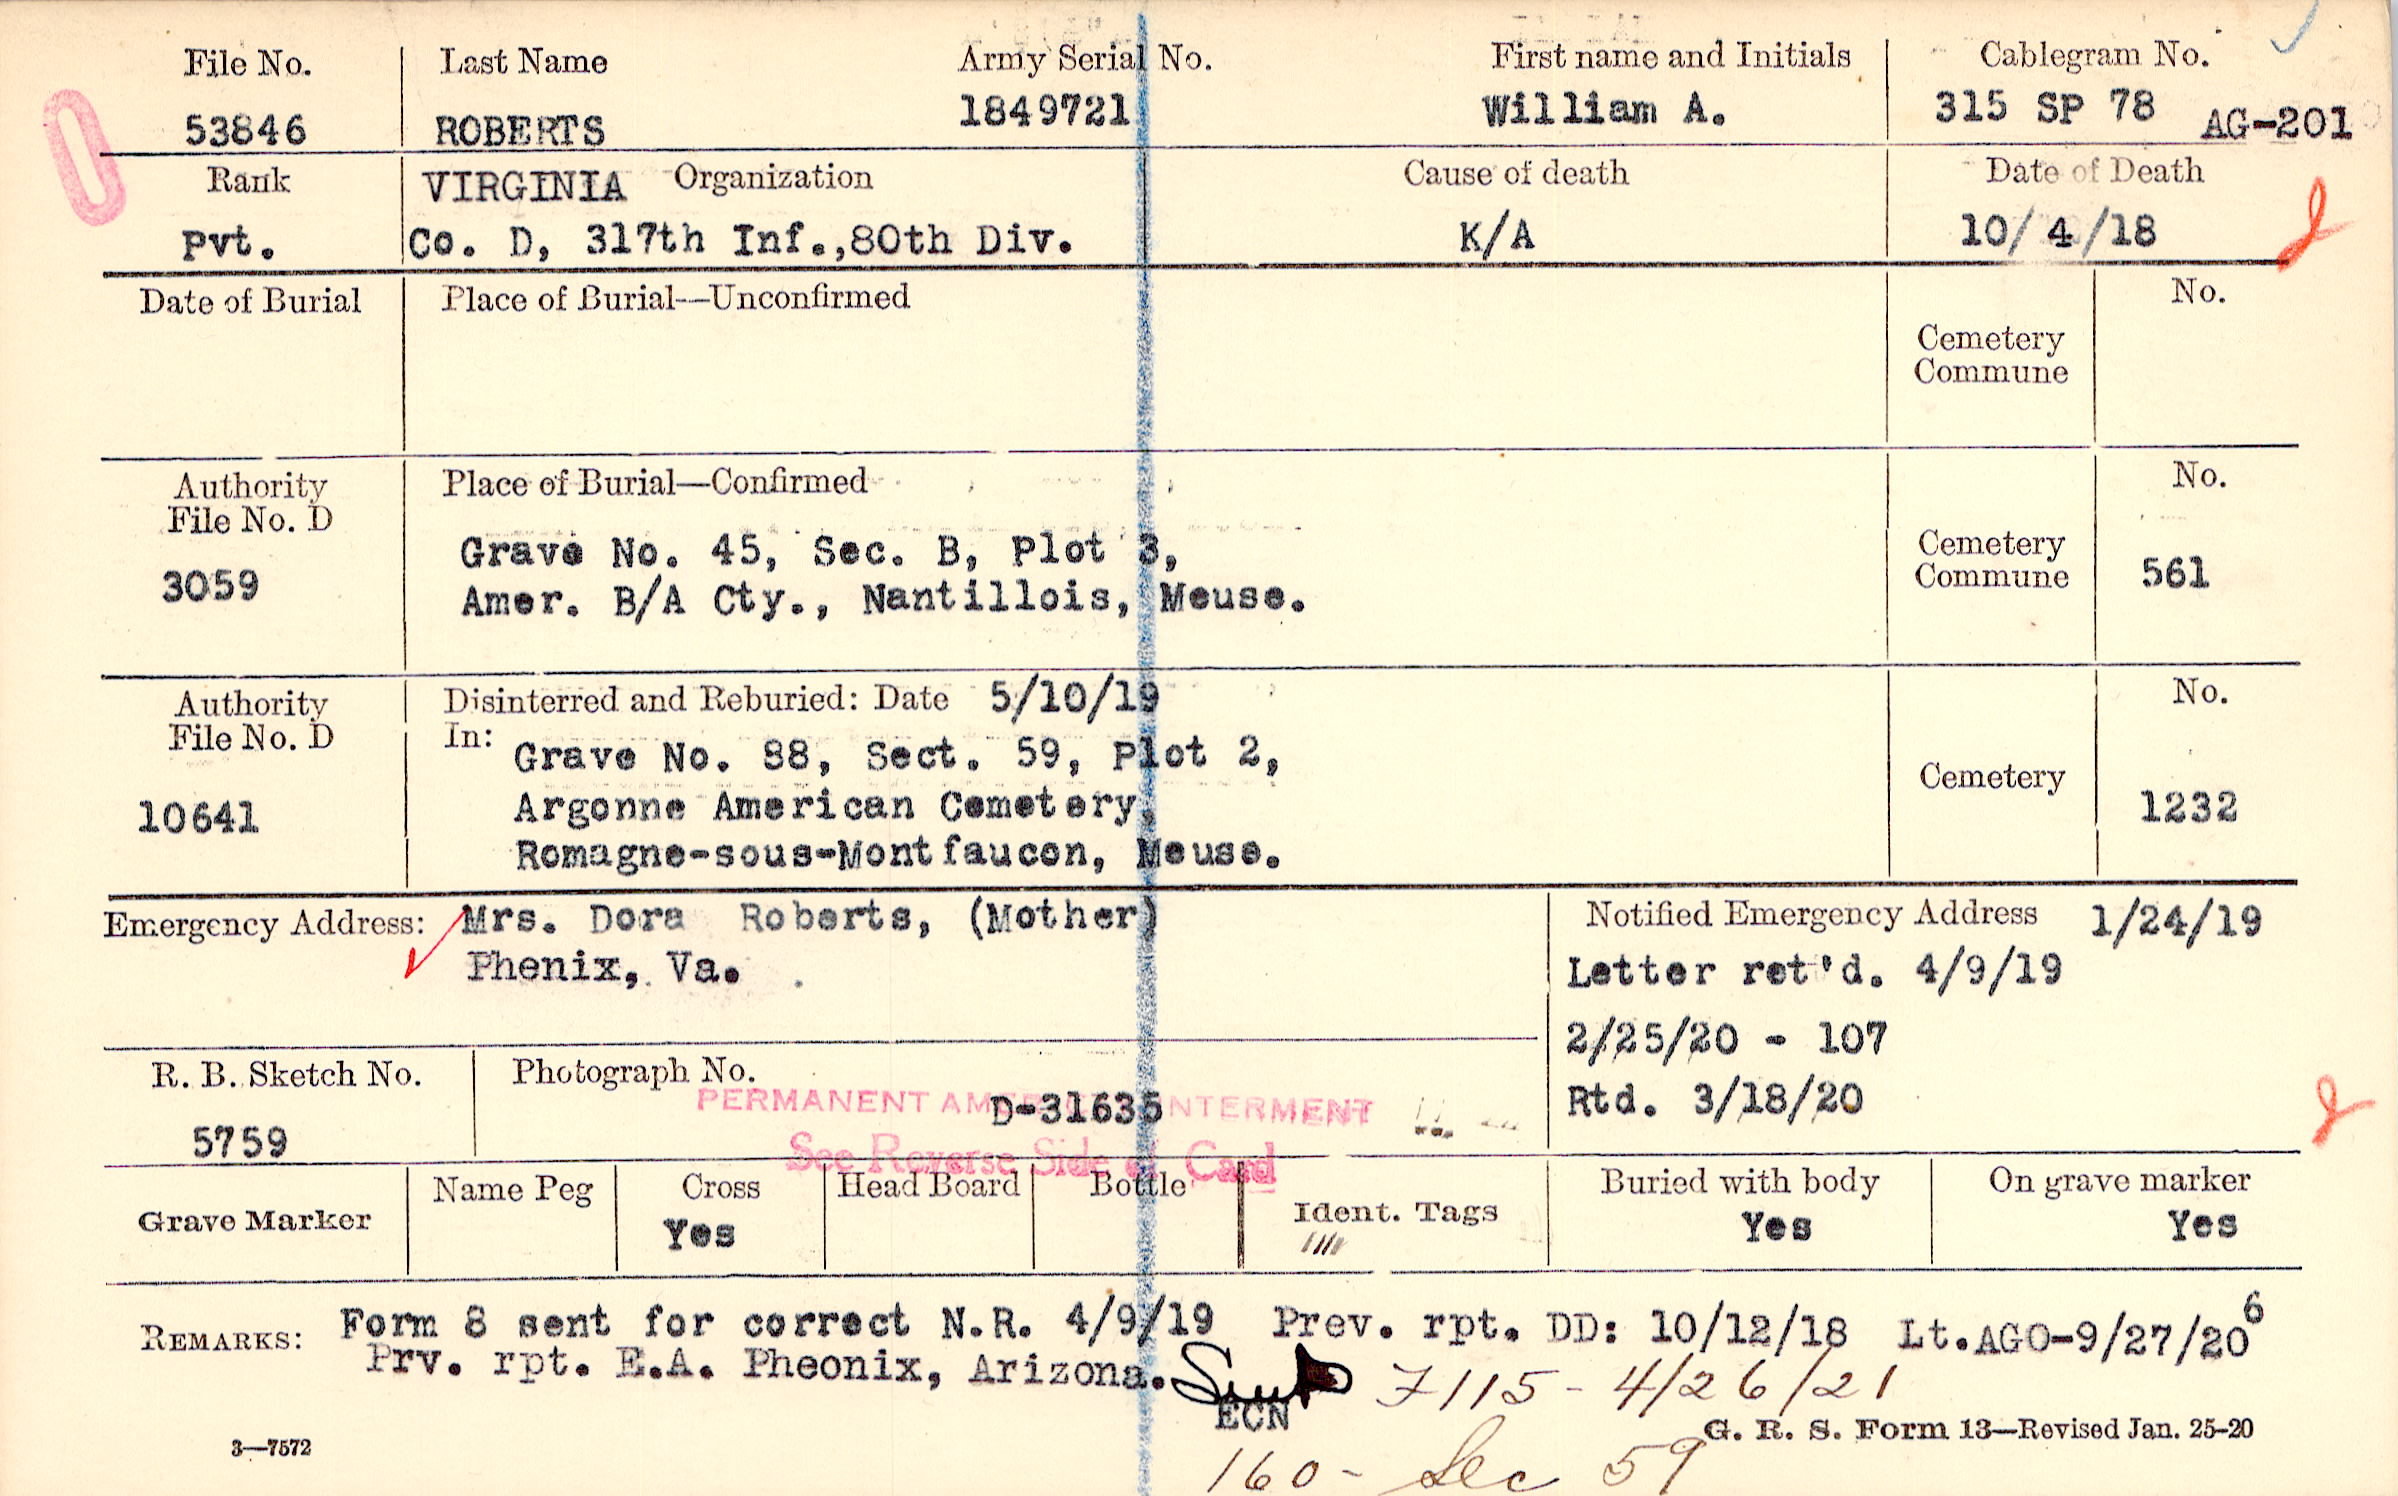 File No. Last Name Army Serial No. First name and Initials Cablegram No.
53846 ROBERTS 1849721 William A. 315 SP 78 AG-201
Rank VIRGINIA Organization Cause of death Date of Death
Pvt. Co. D, 317th Inf.,80th Div. K/A 10/ 4 /18
Date of Burial Place of Burial—Unconfirmed No.
Cemetery
Commune
Authority Place of Burial—Confirmed No.
File No. D
Grave No. 45, Sec. B, Plot 3, Cemetery
3059 Amer. B/A Cty., Nantillois, Meuse. Commune 561
Authority Disinterred and Reburied: Date 5/10/19 No.
File No. D In:
Grave No. 88, Sect. 59, Plot 2, Cemetery
10641 Argonne American Cemetery, 1232
Romagne-sous-Montfaucon, Meuse.
Emergency Address: Mrs. Dora Roberts, (Mother) Notified Emergency Address 1/24/19
Phenix, Va. Letter ret'd. 4/9/19
2/25/20 - 107
Rtd. 3/18/20
R. B. Sketch No. Photograph No.
PERMANENT AMERICAN INTERMENT
5759 D-31635
See Reverse Side of Card
Grave Marker Name Peg Cross Head Board Bottle Ident. Tags Buried with body On grave marker
Yes Yes Yes
REMARKS: Form 8 sent for correct N.R. 4/9/19 Prev. rpt. DD: 10/12/18 Lt.AGO-9/27/20 6
Prv. rpt. E.A. Pheonix, Arizona. 7115 - 4/26/21
ECN
3—7572 G. R. S. Form 13—Revised Jan. 25-20
160 - Sec 59